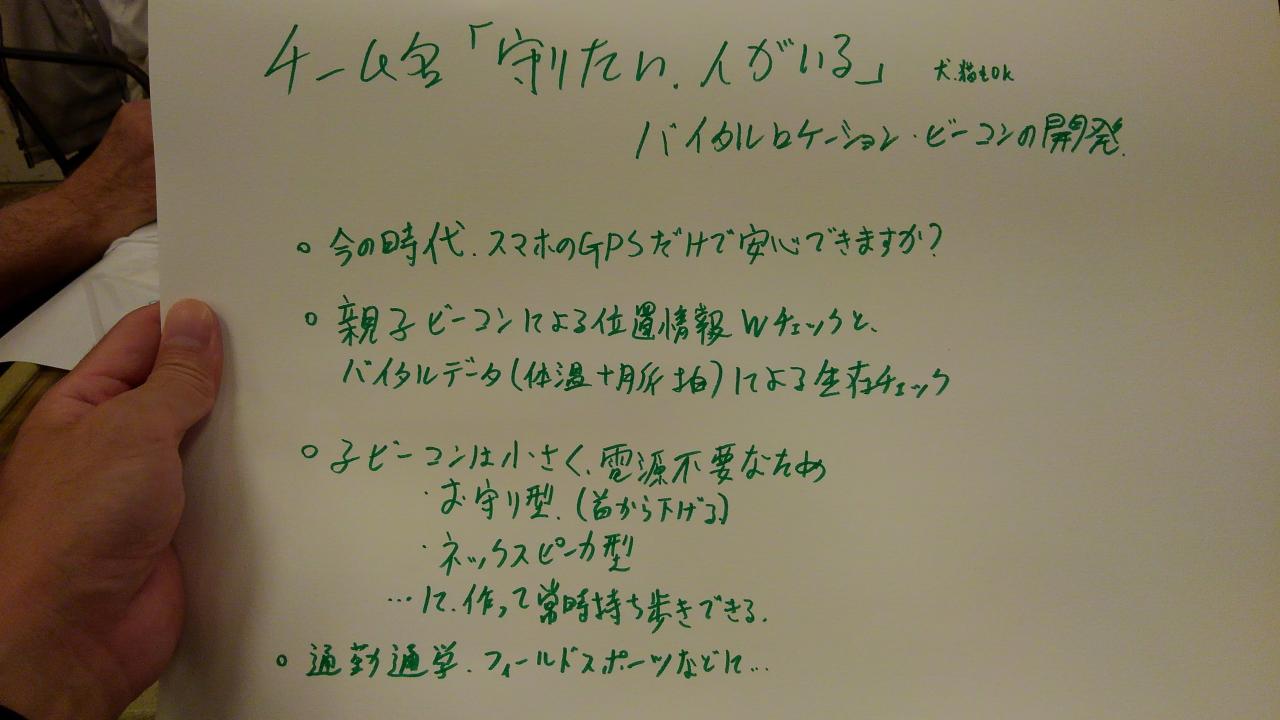 チーム名「守りたい、人がいる」 犬、猫もOK
バイタルロケーション・ビーコンの開発.
○ 今の時代、スマホのGPSだけで安心できますか?
○ 親子ビーコンによる位置情報Wチェックと、
バイタルデータ(体温+脈拍)による生存チェック
○ 子ビーコンは小さく、電源不要なため
・お守り型、(首から下げる)
・ネックスピーカ型
…に、作って常時持ち歩きできる.
○ 通勤通学、フィールドスポーツなどに…